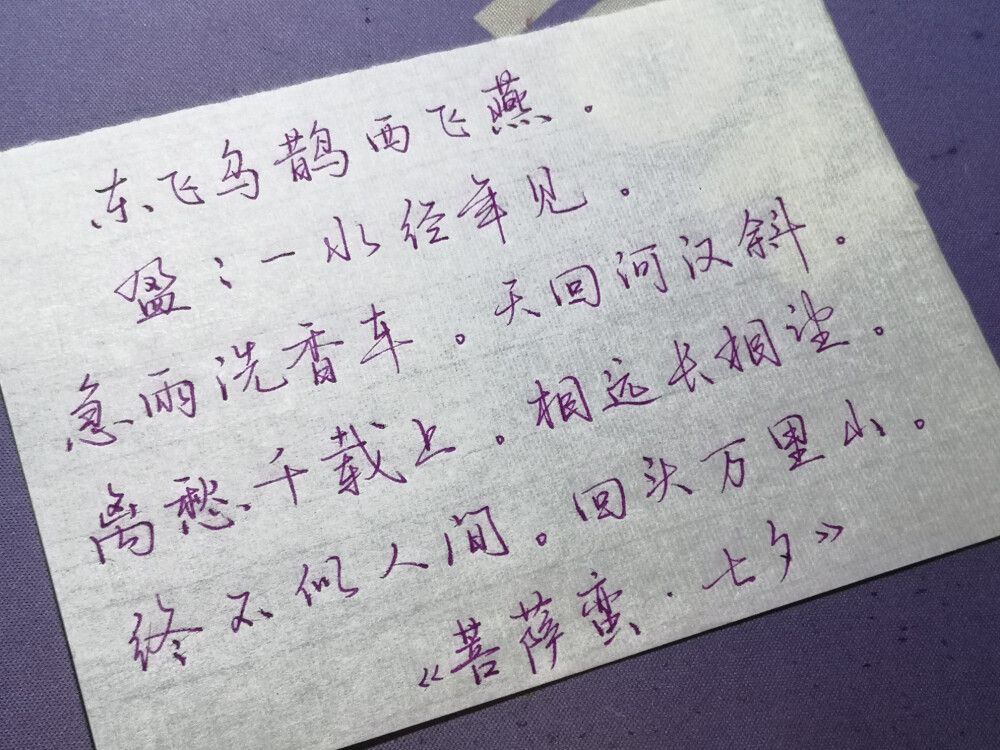 东飞乌鹊西飞燕。
盈:一水经年见。
急雨洗香车。天回河汉斜。
离愁千载上。相远长相望。
终不似人间。回头万里山。
《菩萨蛮·七夕》